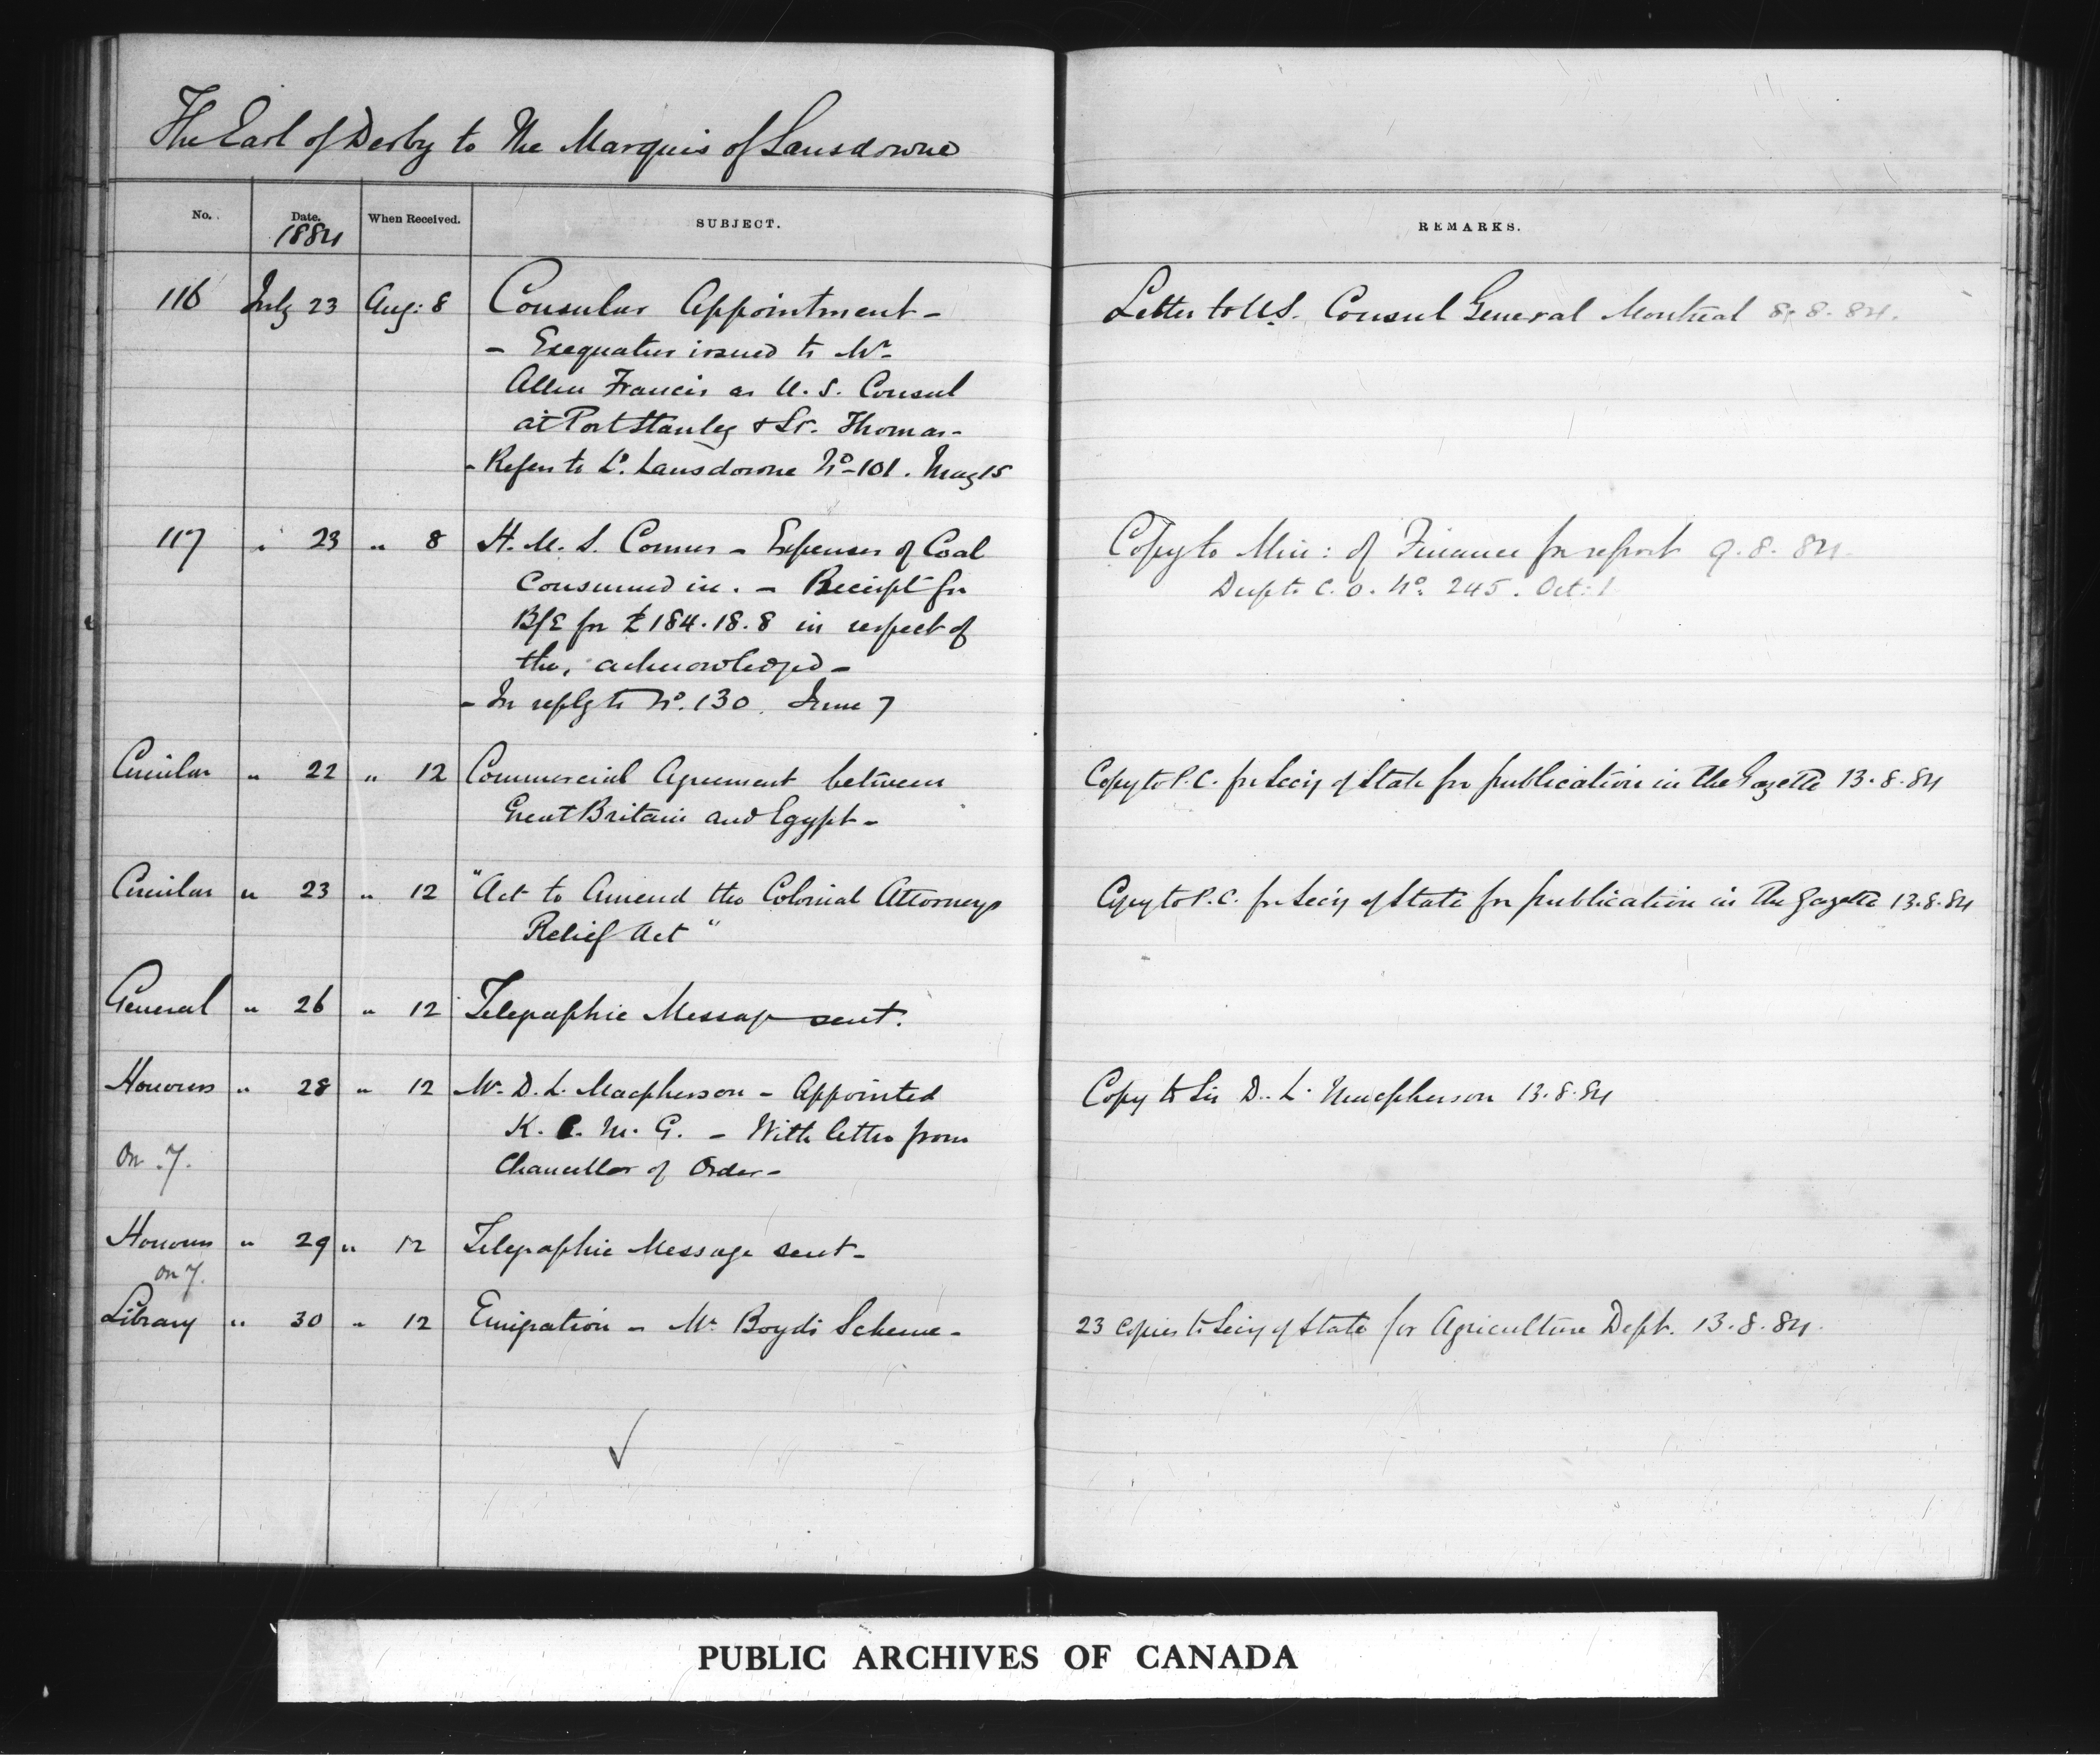 The Earl of Derby to The Marquis of Lansdowne
No. Date. When Received. SUBJECT. REMARKS.
1884
116 July 23 Aug: 8 Consular Appointment - Letter to U.S. Consul General Montreal 8. 8. 84.
- Exequatur issued to Mr
Allen Francis as U. S. Consul
at Port Stanley & St. Thomas -
- Refers to Ld. Lansdowne No - 101. May 15
117 " 23 " 8 H. M. S. Comus - Expenses of Coal Copy to Min: of Finance for report 9. 8. 84
Consumed in. - Receipt for Desp to C. O. No. 245. Oct: 1
B/E for £184.18.8 in respect of
the, acknowledged -
- In reply to No. 130. June 7
Circular " 22 " 12 Commercial Agreement between Copy to P. C. for Secy of State for publication in the Gazette 13. 8. 84
Great Britain and Egypt -
Circular " 23 " 12 "Act to Amend the Colonial Attorneys Copy to P. C. for Secy of State for publication in the Gazette 13. 8. 84
Relief Act"
General " 26 " 12 Telegraphic Message sent.
Honours " 28 " 12 Mr. D. L. Macpherson - Appointed Copy to Sir D. L. Macpherson 13. 8. 84
K. C. M. G. - With letter from
on 7. Chancellor of Order -
Honours " 29 " 12 Telegraphic Message sent -
on 7.
Library " 30 " 12 Emigration - Mr Boyd's Scheme - 23 copies to Secy of State for Agriculture Dept. 13. 8. 84.
PUBLIC ARCHIVES OF CANADA